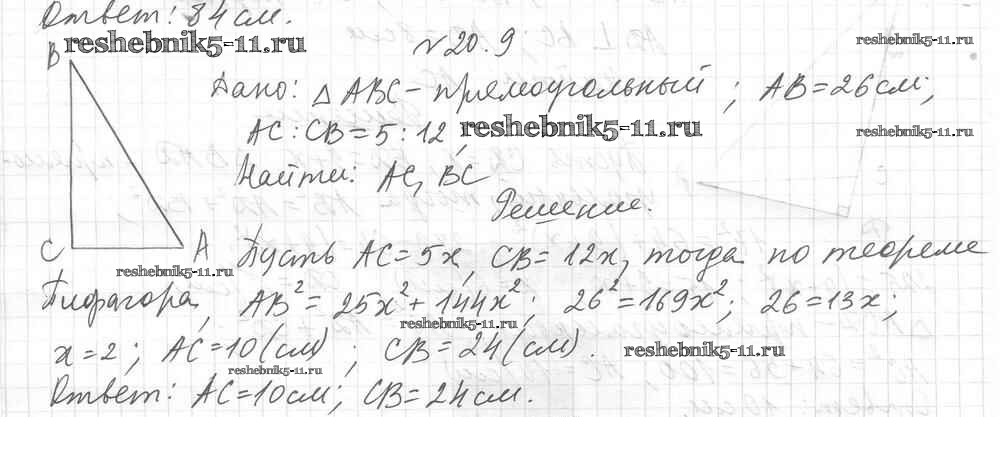 Ответ: 84 см.
reshebnik5-11.ru
N 20.9
reshebnik5-11.ru
B
Дано: △ ABC – прямоугольный ; AB = 26 см;
AC : CB = 5 : 12,
reshebnik5-11.ru
reshebnik5-11.ru
Найти: AC, BC
Решение.
C A
Пусть AC = 5x, CB = 12x, тогда по теореме
reshebnik5-11.ru
Пифагора, AB² = 25x² + 144x²; 26² = 169x²; 26 = 13x;
reshebnik5-11.ru
x = 2 ; AC = 10 (см) ; CB = 24 (см).
reshebnik5-11.ru
reshebnik5-11.ru
Ответ: AC = 10 см; CB = 24 см.